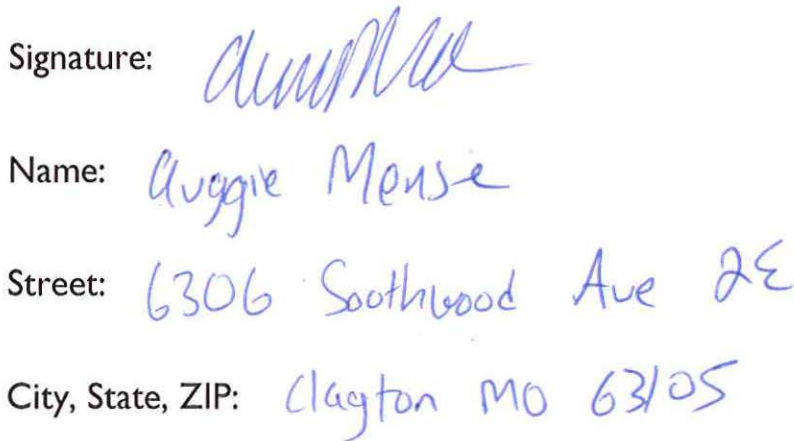 Signature:
Name: Auggie Mense
Street: 6306 Southwood Ave 2E
City, State, ZIP: Clayton MO 63105